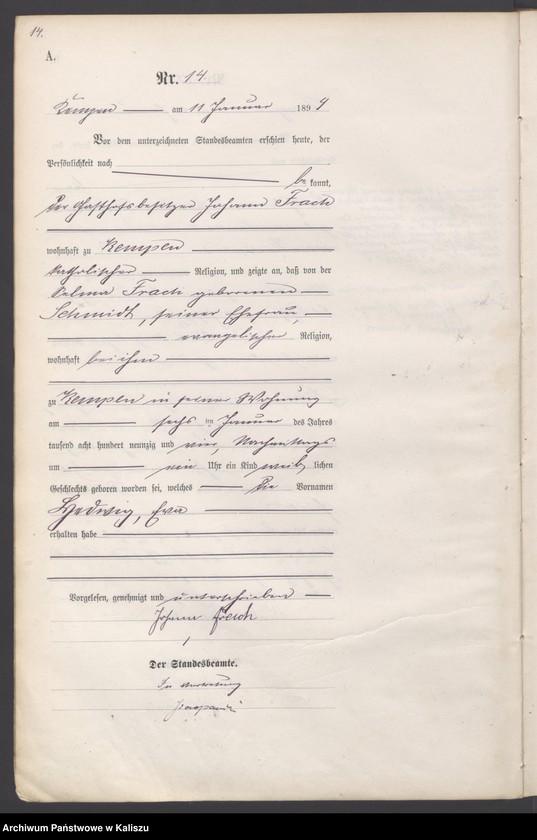 14.
A.
Nr. 14.
Kempen am 11 Januar 1894
Vor dem unterzeichneten Standesbeamten erschien heute, der
Persönlichkeit nach
bekannt,
der Gasthofsbesitzer Johann Frach
wohnhaft zu Kempen
katholischer Religion, und zeigte an, daß von der
Selma Frach geborenen
Schmidt, seiner Ehefrau,
evangelischer Religion,
wohnhaft bei ihm
zu Kempen in seiner Wohnung
am sechs ten Januar des Jahres
tausend acht hundert neunzig und vier, Nachmittags
um ein Uhr ein Kind weiblichen
Geschlechts geboren worden sei, welches die Vornamen
Hedwig, Eva
erhalten habe
Vorgelesen, genehmigt und unterschrieben
Johann Frach
Der Standesbeamte.
In Vertretung
Archiwum Państwowe w Kaliszu